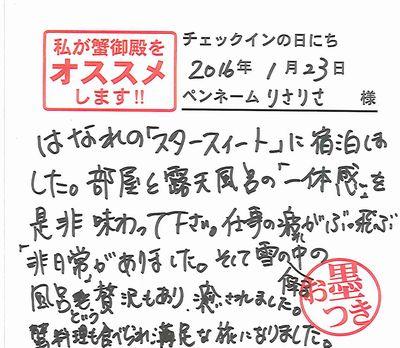 私が蟹御殿を
オススメ
します!!
チェックインの日にち
2016年 1月23日
ペンネーム りさりさ 様
はなれの「スタースィート」に宿泊しま
した。部屋と露天風呂の「一体感」を
是非味わって下さい。仕事の疲れがぶっ飛ぶ
非日常がありました。そして雪の中の
風呂という贅沢もあり、癒されました。
蟹料理も食べられ満足な旅になりました。
お墨つき